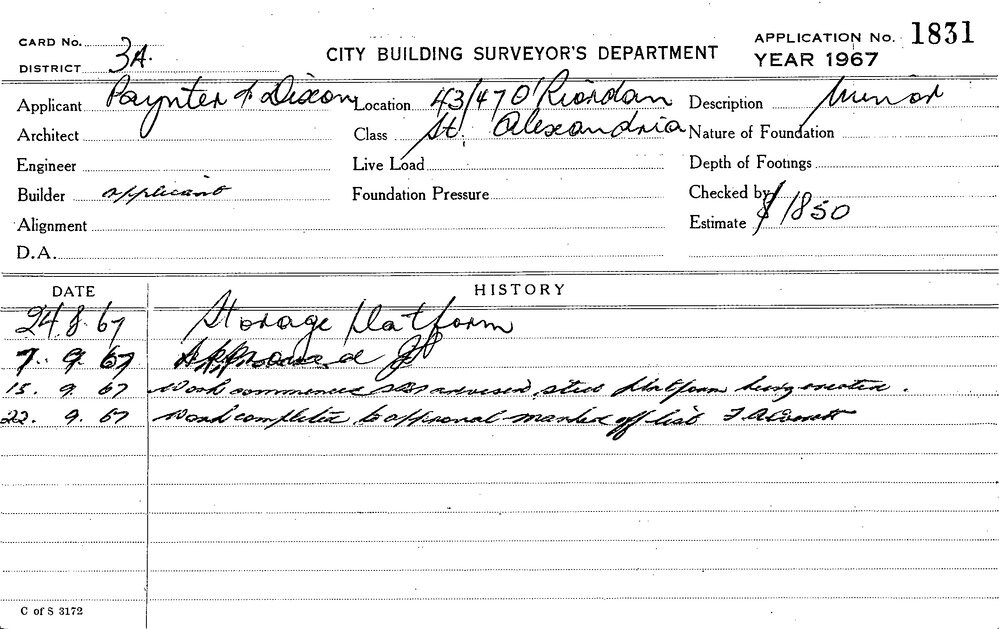 CARD No.
DISTRICT 3A.
CITY BUILDING SURVEYOR'S DEPARTMENT
APPLICATION No. 1831
YEAR 1967
Applicant Paynter & Dixon
Location 43/47 O'Riordan
Description Minor
Architect
Class St. Alexandria
Nature of Foundation
Engineer
Live Load
Depth of Footings
Builder applicant
Foundation Pressure
Checked by
Alignment
Estimate $1850
D.A.
DATE HISTORY
24.8.67 Storage platform
7. 9. 67 Approved
15. 9. 67 Work commenced advised steel platform being erected.
22. 9. 67 Work completed to approval marked off list
C of S 3172